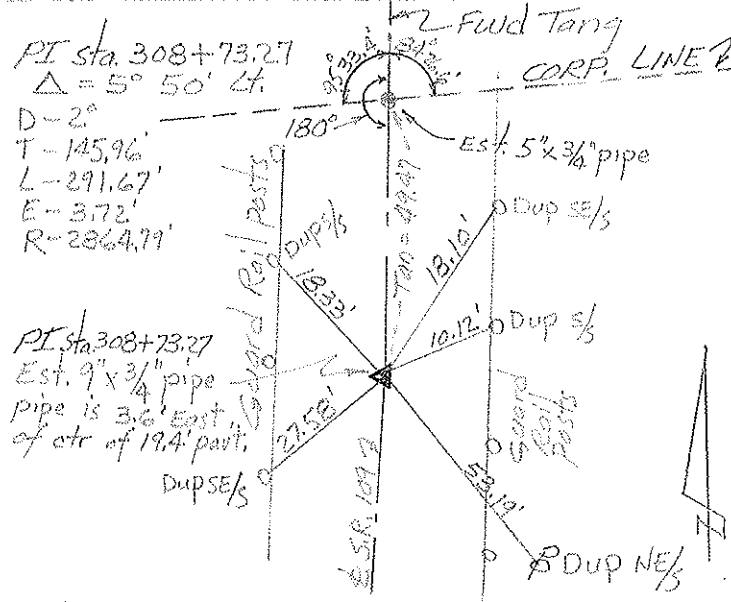 Fwd Tang
PI sta. 308+73.27
Δ = 5° 50' Lt.
D - 2°
T - 145.96'
L - 291.67'
E - 3.72'
R - 2864.79'
95°33.4'
180°
CORP. LINE
Est. 5"x3/4" pipe
Tan = 49.47
Guard Rail Posts
Dup S/S
18.33'
18.10'
Dup SE/S
10.12'
Dup S/S
PI sta 308+73.27
Est. 9"x3/4" pipe
pipe is 3.6' East
of ctr of 19.4' pav't.
27.58'
Dup SE/S
Guard
Rail
Posts
53.19'
Dup NE/S
S.R. 109
N